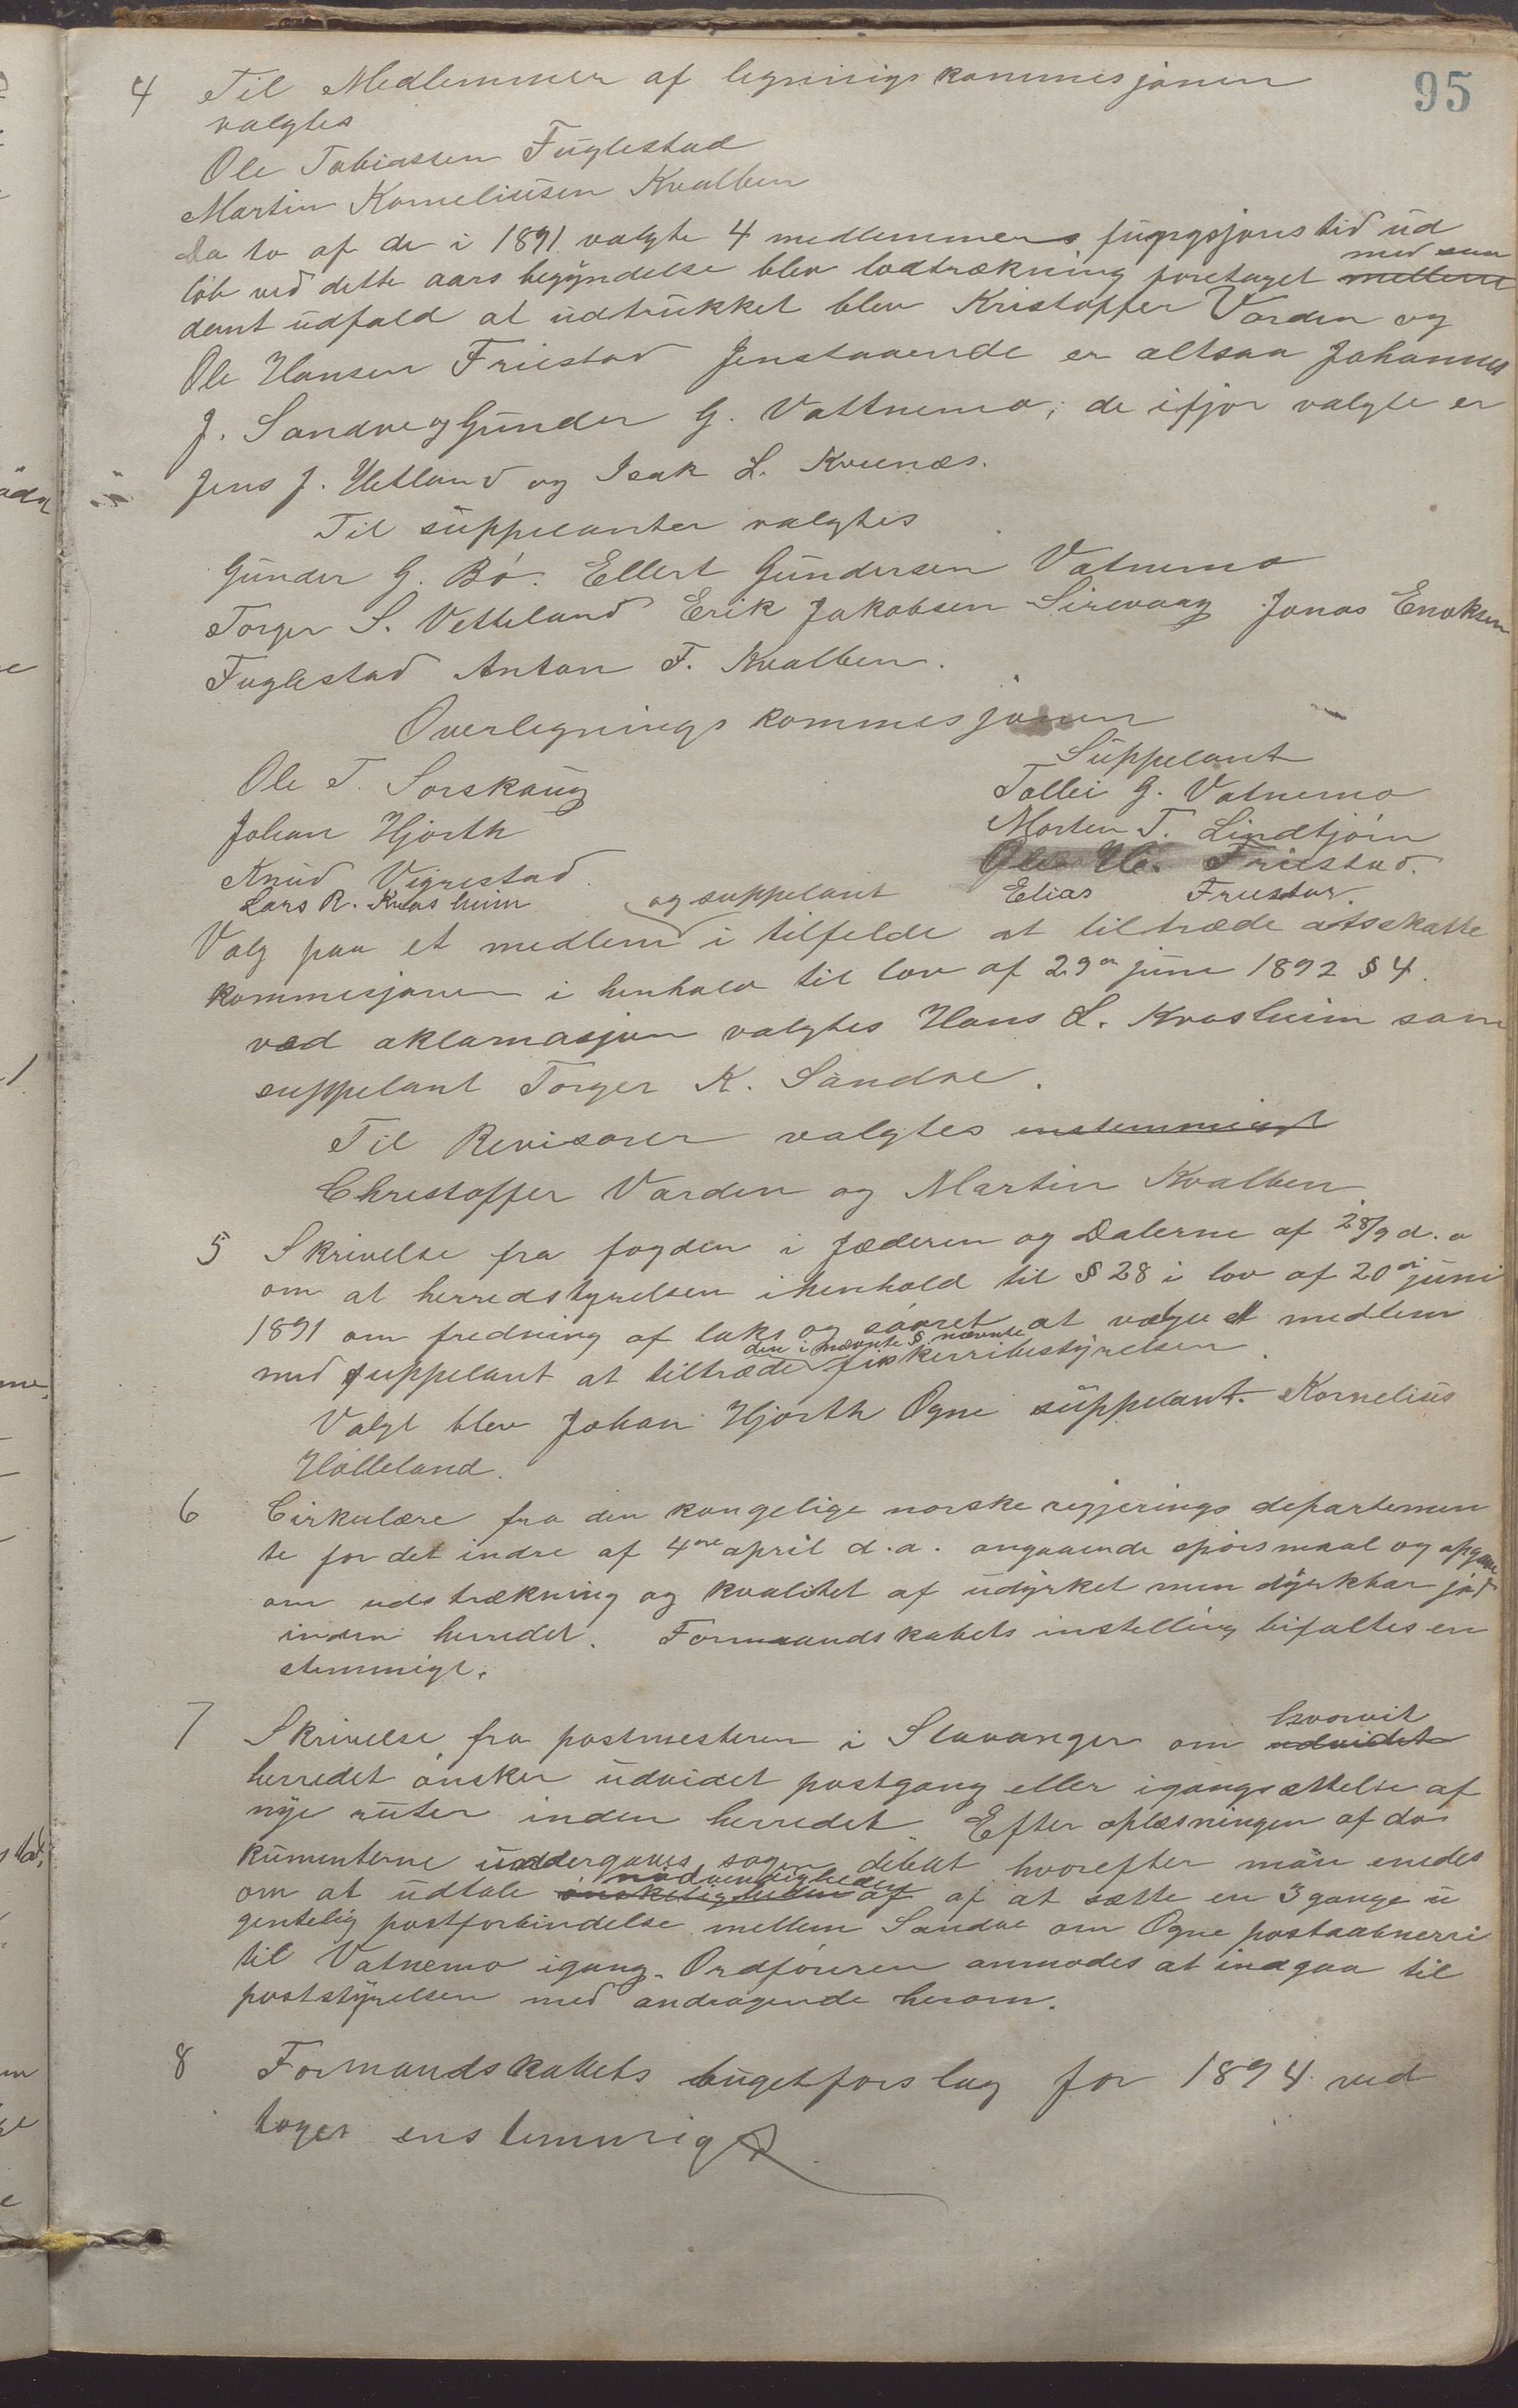 95
4 Til Medlemmer af legnings kommisjonen
valgtes
Ole Tobiassen Fuglestad
Martin Korneliusen Kvalben
Da to af de i 1891 valgte 4 medlemmers fungsjonstid ud
løb ved dette aars begyndelse blev lodtrækning foretaget mellem med saa
dant udfald at udtrukket blev Kristoffer Varden og
Ole Hansen Friestad Jenstaaende er altsaa Johannes
J. Sandve og Gunder G. Vattnemo, de ifjor valgte er
Jens J. Hetland og Isak L. Kvernæs.
Til suppelanter valgtes
Gunder G. Bö. Ellert Gundersen Vatnemo
Torger S. Vetteland Erik Jakobsen Sirevaag Jonas Enoksen
Fuglestad Anton F. Kvalben.
Overlegnings kommisjonen
Suppelant
Ole T. Sorskaug Tollei G. Vatnemo
Johan Hjorth Morten T. Lindtjörn
Knud Vigrestad. Ole H. Friestad.
Lars R. Kvasheim Elias Friestad.
Valg paa et medlem og suppelant i tilfelde at tiltræde atsskatte
kommisjonen i henhold til lov af 29de juni 1892 § 4.
ved aklamasjon valgtes Hans L. Kvasheim som
suppelant Torger K. Sandve.
Til Revisorer valgtes enstemmigt
Christoffer Varden og Martin Kvalben.
5 Skrivelse fra fogden i Jæderen og Dalerne af 28/9 d. a
om at herredstyrelsen ihenhold til § 28 i lov af 20de juni
1891 om fredning af laks og söøret at vælge et medlem
med suppelant at tiltræde den i nævnte § nævnte fiskerribestyrelsen.
Valgt blev Johan Hjorth Ogne suppelant. Kornelius
Hölleland.
6 Cirkulære fra den kongelige norske regjerings departemen
te for det indre af 4de april d. a. angaaende spörsmaal og opgave
om udstrækning og kvalitet af udyrket men dyrkbar jord
inden herredet. Formaandskabets instelling bifaltes en
stemmigt.
7 Skrivelse fra postmesteren i Stavanger om udvidet hvorvit
herredet önsker udvidet postgang eller igangsættelse af
nye ruter inden herredet. Efter oplæsningen af do
kumenterne undergaves sagen debat hvorefter man enedes
om at udtale önskeligheden af nödvendigheden af at sætte en 3 gange u
gentelig postforbindelse mellem Sandve om Ogne postaabnerri
til Vatnemo igang. Ordföreren anmodes at indgaa til
poststyrelsen med andragende herom.
8 Formandskabets bugetforslag for 1894 ved
toges enstemmigt